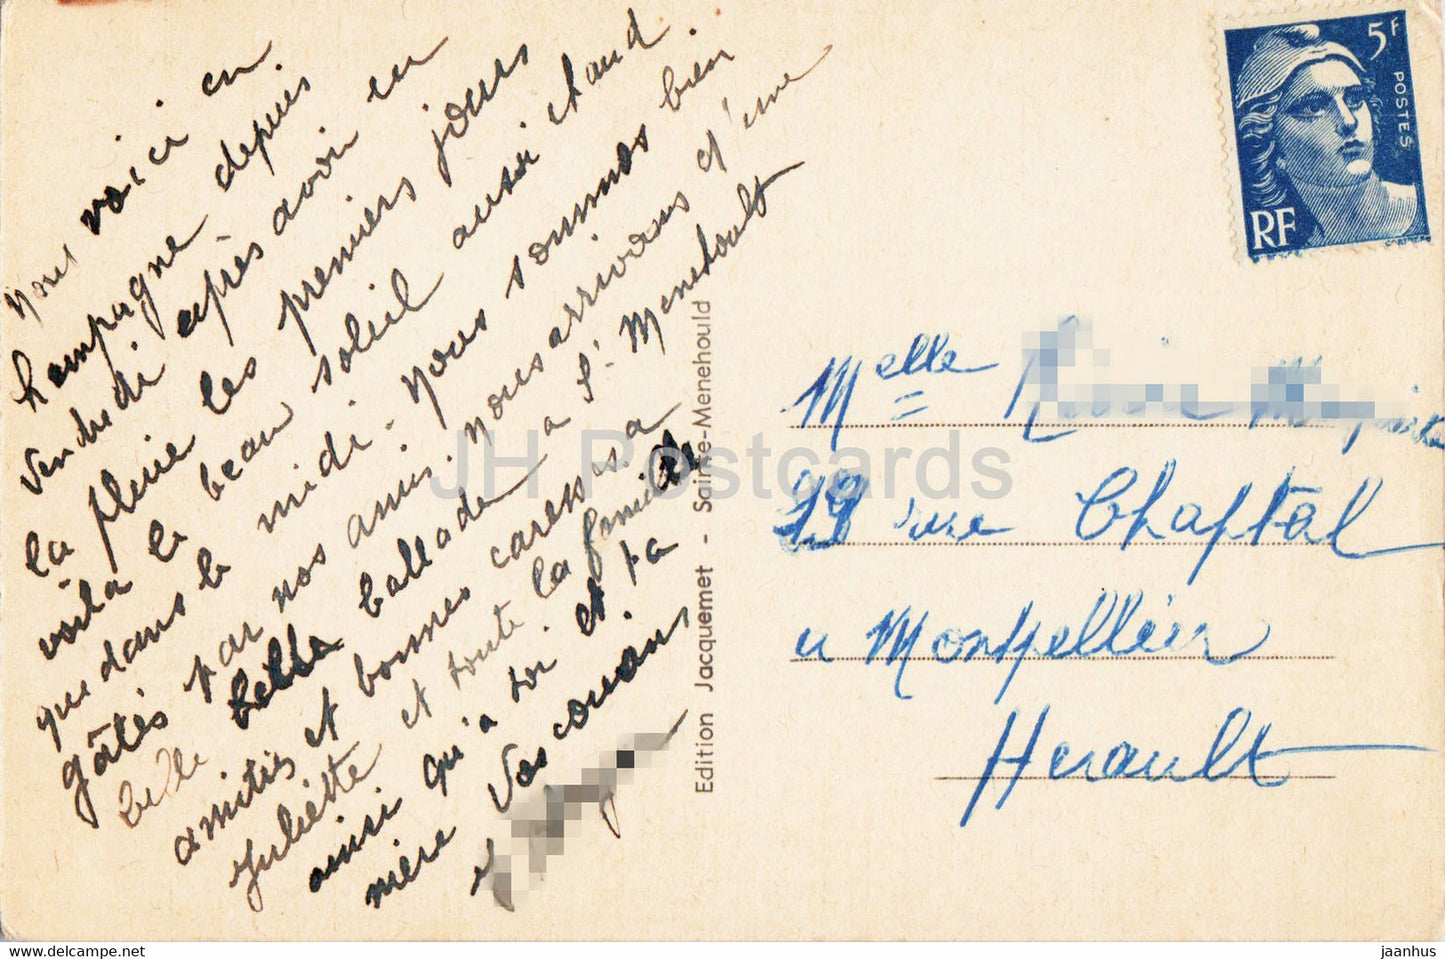 Nous voici en
Champagne depuis
Vendredi après avoir eu
la pluie les premiers jours
voila le beau soleil aussi chaud.
que dans le midi. Nous sommes bien
gâtés par nos amis. Nous arrivons d'une
belle ballade a St Menehoult
amitiés et bonnes caresses a
Juliette et toute la famille
ainsi qu'a toi et ta
mère Vos cousins
Edition Jacquemet - Sainte-Menehould
5F
POSTES
RF
Melle
19 rue Chaptal
a Montpellier
Herault
JH Postcards
hipcard.com
jaanhus